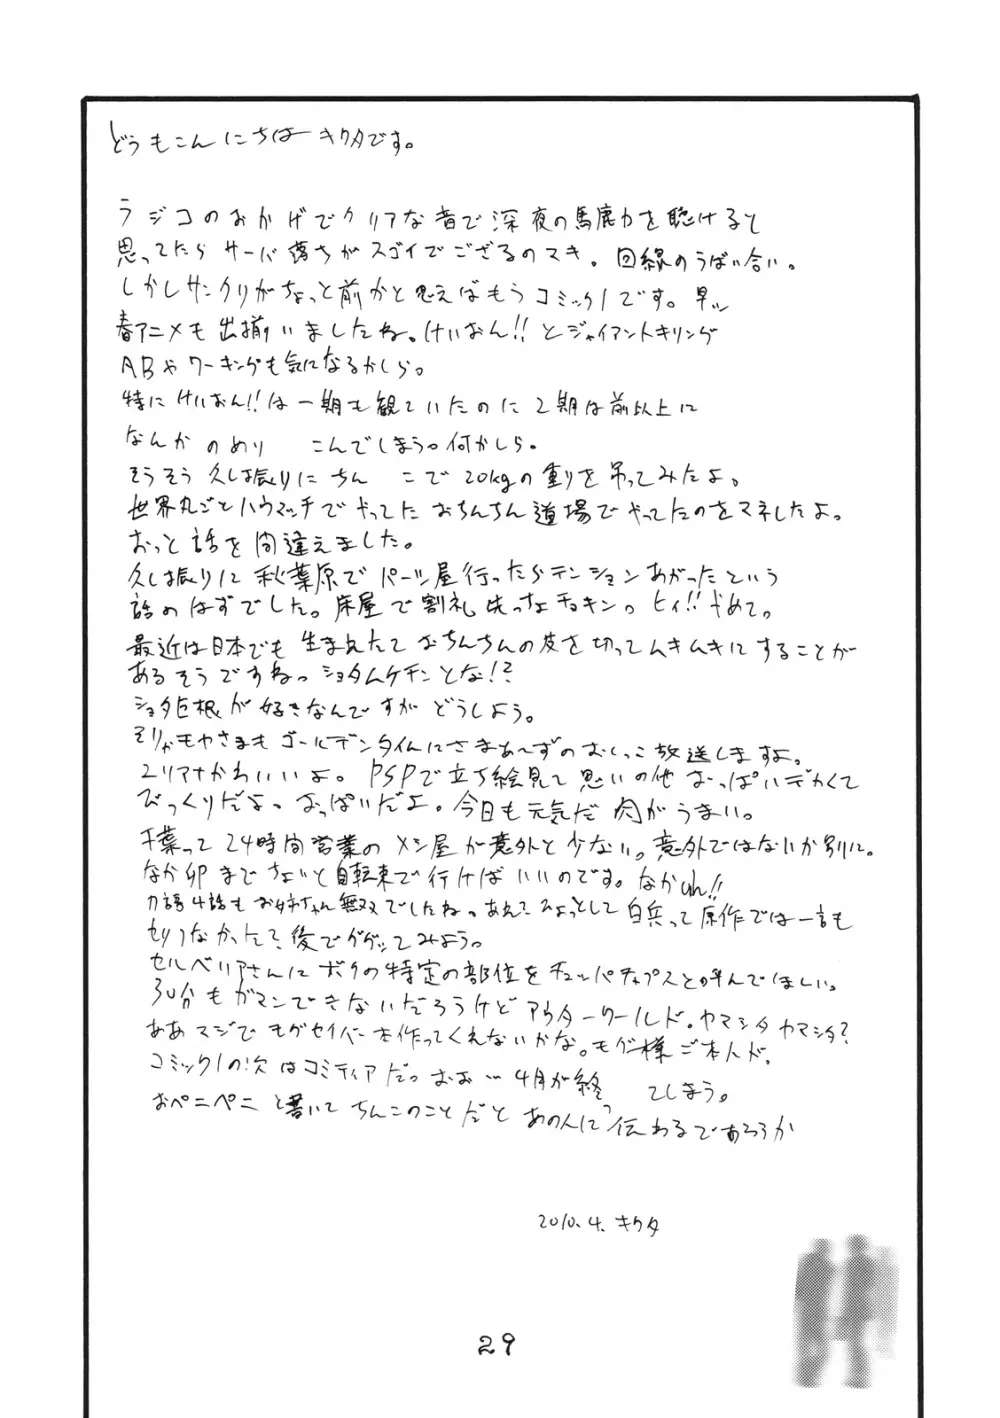 どうもこんにちは キクタです。
ラジコのおかげでクリアな音で深夜の馬鹿力を聴けると
思ってたら サーバ落ちがスゴイでござるのマキ。回線のうばい合い。
しかしサンクリがちょっと前かと思えばもうコミック1です。早ッ
春アニメも出揃いましたね。けいおん!!とジャイアントキリング
ABやワーキングも気になるかしら。
特にけいおん!!は一期も観ていたのに2期は前以上に
なんかのめり こんでしまう。何かしら。
そうそう久し振りに ちん こで20kgの重りを吊ってみたよ。
世界丸ごとハウマッチでやってたおちんちん道場でやってたのをマネしたよ。
おっと話を間違えました。
久し振りに秋葉原でパーツ屋行ったらテンションあがったという
話のはずでした。床屋で割礼 先っちょチョキン。ヒィ!!やめて。
モヤさまもゴールデンタイムにさまぁ〜ずのおしっこ放送しますよ。
ユリアナかわいいよ。PSPで立ち絵見て思いの他おっぱいデカくて
びっくりだよ。おっぱいだよ。今日も元気だ肉がうまい。
千葉って24時間営業のメシ屋が意外と少ない。意外ではないか別に。
なか卯までちょいと自転車で行けばいいのです。なかれ!!
刀語4話もお姉ちゃん無双でしたね。あれ?ひょっとして白兵って原作では一言も
セリフなかったて?後でググッてみよう。
セルベリアさんにボクの特定の部位をチュッパチャプスと呼んでほしい。
30分もガマンできないだろうけどアウターワールド。ヤマシタ ヤマシタ?
ああマジでモゲセイバー本作ってくれないかな。モゲ様ご本人ド。
コミック1の次はコミティアだっ おお… 4月が終 てしまう。
おペニペニと書いてちんこのことだとあの人に伝わるであろうか
2010.4. キクタ
29